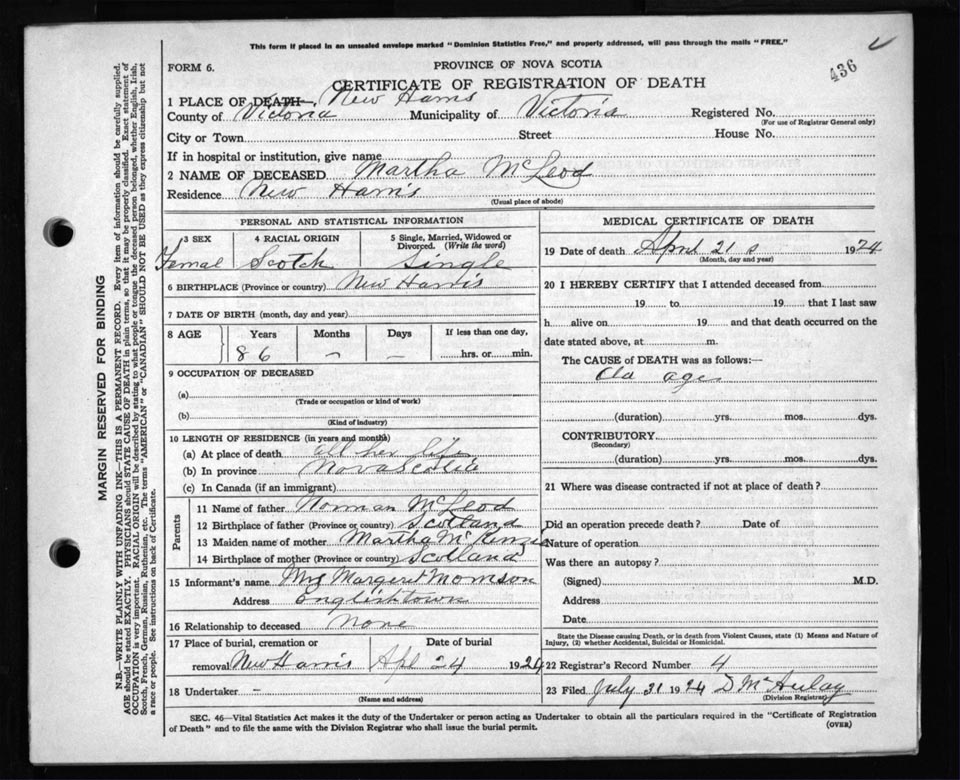 This form if placed in an unsealed envelope marked "Dominion Statistics Free," and properly addressed, will pass through the mails "FREE."
436
FORM 6.
PROVINCE OF NOVA SCOTIA
CERTIFICATE OF REGISTRATION OF DEATH
1 PLACE OF DEATH New Harris
County of Victoria Municipality of Victoria Registered No.
(For use of Registrar General only)
City or Town Street House No.
If in hospital or institution, give name
2 NAME OF DECEASED Martha McLeod
Residence New Harris
(Usual place of abode)
PERSONAL AND STATISTICAL INFORMATION
3 SEX 4 RACIAL ORIGIN 5 Single, Married, Widowed or
Divorced. (Write the word)
Femal Scotch Single
6 BIRTHPLACE (Province or country) New Harris
7 DATE OF BIRTH (month, day and year)
8 AGE Years Months Days If less than one day,
86 – – hrs. or min.
9 OCCUPATION OF DECEASED
(a)
(Trade or occupation or kind of work)
(b)
(Kind of industry)
10 LENGTH OF RESIDENCE (in years and months)
(a) At place of death all her life
(b) In province Nova Scotia
(c) In Canada (if an immigrant)
Parents
11 Name of father Norman McLeod
12 Birthplace of father (Province or country) Scotland
13 Maiden name of mother Martha McKenzie
14 Birthplace of mother (Province or country) Scotland
15 Informant's name Mrs Margeret Morrison
Address Englishtown
16 Relationship to deceased none
17 Place of burial, cremation or Date of burial
removal New Harris Apl 24 1924
18 Undertaker –
(Name and address)
MEDICAL CERTIFICATE OF DEATH
19 Date of death April 21 s 1924
(Month, day and year)
20 I HEREBY CERTIFY that I attended deceased from
19 to 19 that I last saw
h alive on 19 and that death occurred on the
date stated above, at m.
The CAUSE of DEATH was as follows:—
Old age
(duration) yrs. mos. dys.
CONTRIBUTORY
(Secondary)
(duration) yrs. mos. dys.
21 Where was disease contracted if not at place of death?
Did an operation precede death? Date of
Nature of operation
Was there an autopsy?
(Signed) M.D.
Address
Date
State the Disease causing Death, or in death from Violent Causes, state (1) Means and Nature of
Injury, (2) whether Accidental, Suicidal or Homicidal.
22 Registrar's Record Number 4
23 Filed July 31 1924 D McAulay
(Division Registrar)
SEC. 46—Vital Statistics Act makes it the duty of the Undertaker or person acting as Undertaker to obtain all the particulars required in the "Certificate of Registration
of Death" and to file the same with the Division Registrar who shall issue the burial permit.
(OVER)
MARGIN RESERVED FOR BINDING
N.B.—WRITE PLAINLY WITH UNFADING INK—THIS IS A PERMANENT RECORD. Every item of information should be carefully supplied.
AGE should be stated EXACTLY. PHYSICIANS should STATE CAUSE OF DEATH in plain terms, so that it may be properly classified. Exact statement of
OCCUPATION is very important. RACIAL ORIGIN will be described by stating to what people or tongue the deceased person belonged, whether English, Irish,
Scotch, French, German, Russian, Ruthenian, etc. The terms "AMERICAN" or "CANADIAN" SHOULD NOT BE USED as they express citizenship but not
a race or people. See instructions on back of Certificate.